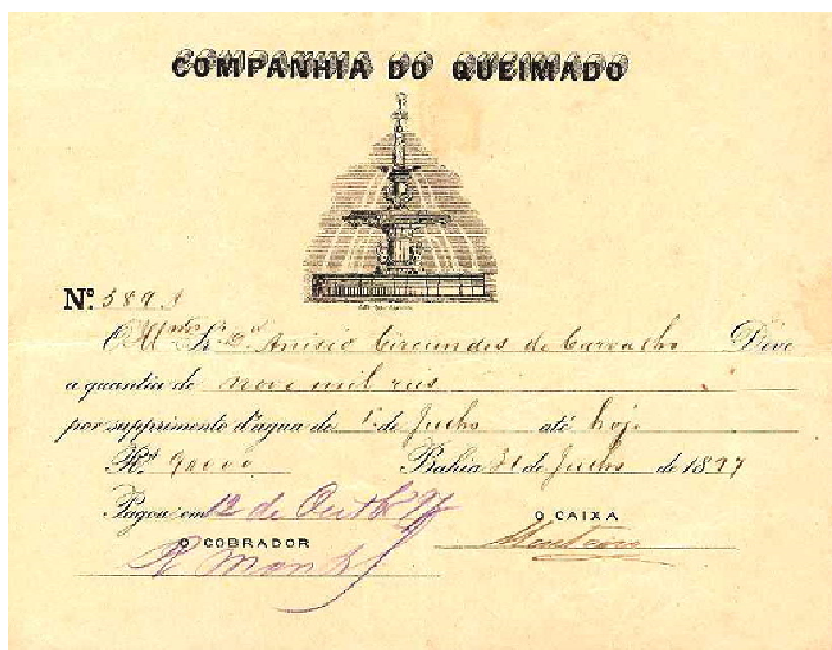 COMPANHIA DO QUEIMADO
Nº 389
Anisio Circundes de Carvalho Deve
a quantia de nove mil reis
por supprimento d'agua de 1º de Julho até hoje
Rs 9000 Bahia 31 de Julho de 1897
Pagou em 12 de Outbº 97
O CAIXA
O COBRADOR
Monteiro